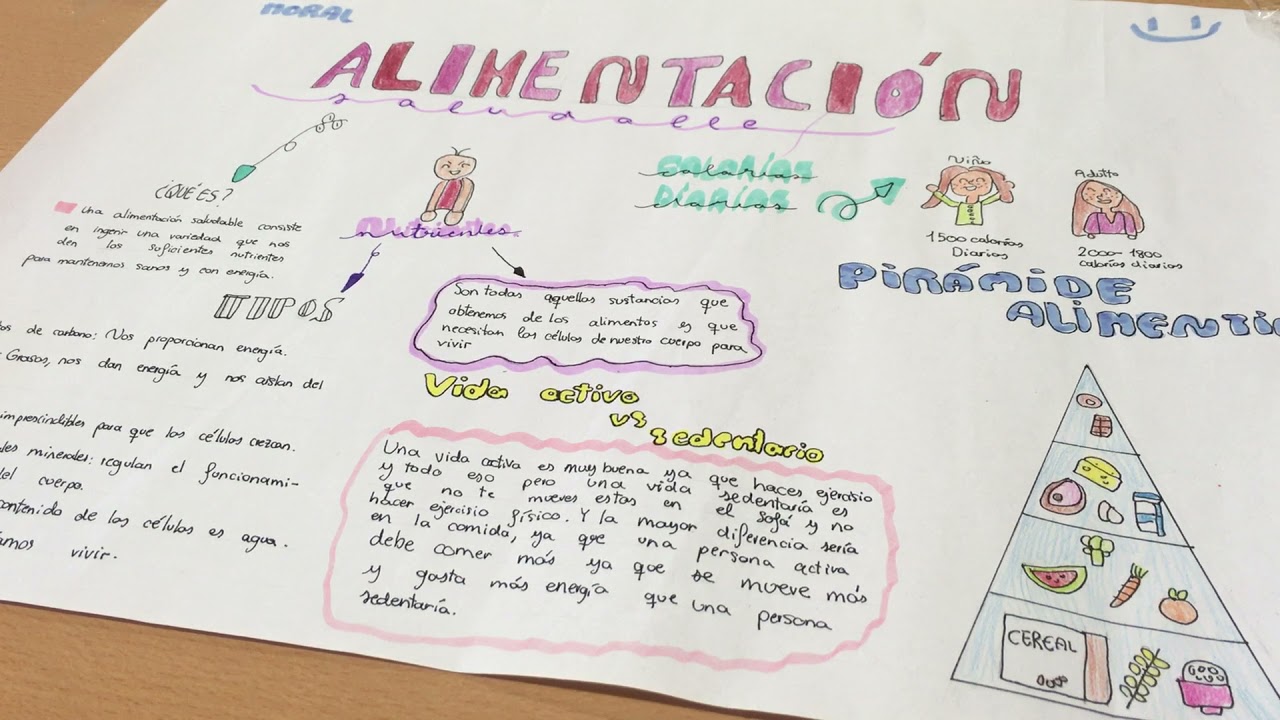 MORAL
ALIMENTACIÓN
saludable
¿QUÉ ES?
Una alimentación saludable consiste
en ingerir una variedad que nos
den los suficientes nutrientes
para mantenernos sanos y con energía.
Nutrientes
TIPOS
de carbono: Nos proporcionan energía.
Grasas, nos dan energía y nos aislan del
imprescindibles para que las células crezcan.
minerales: regulan el funcionami-
cuerpo.
contenido de las células es agua.
vivir.
Son todas aquellas sustancias que
obtenemos de los alimentos es que
necesitan las células de nuestro cuerpo para
vivir
Vida activa
vs
sedentario
Una vida activa es muy buena ya que haces ejercisio
y todo eso pero una vida sedentaria es
que no te mueves estas en el sofá y no
hacer ejercicio físico. Y la mayor diferencia sería
en la comida, ya que una persona activa
debe comer más ya que se mueve más
y gasta más energía que una persona
sedentaría.
calorías
diarias
Niño
1500 calorías
Diarias
Adulto
2000-1800
calorías diarias
PIRÁMIDE
ALIMENTI
CEREAL